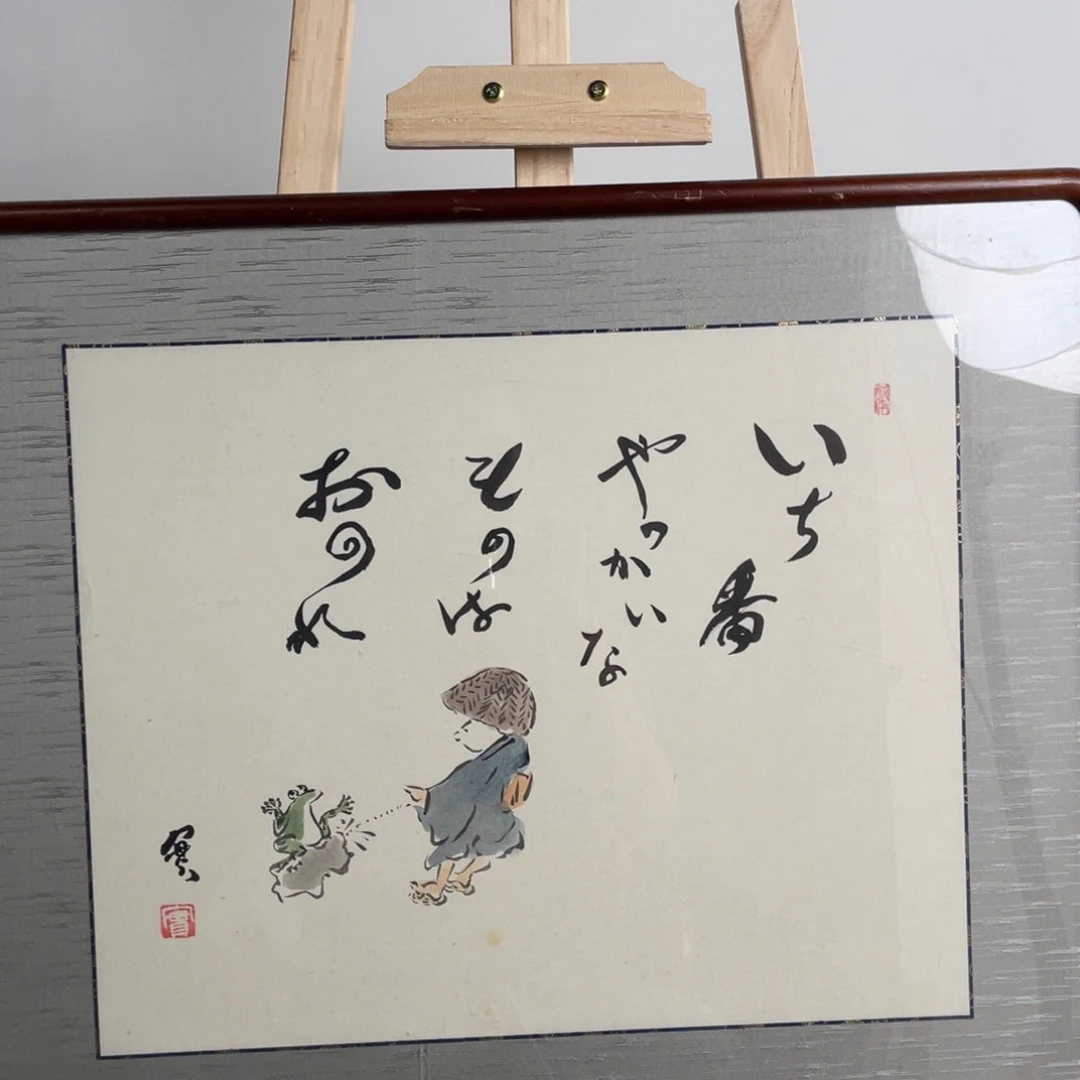 いち番
やっかいな
ものは
おのれ
實